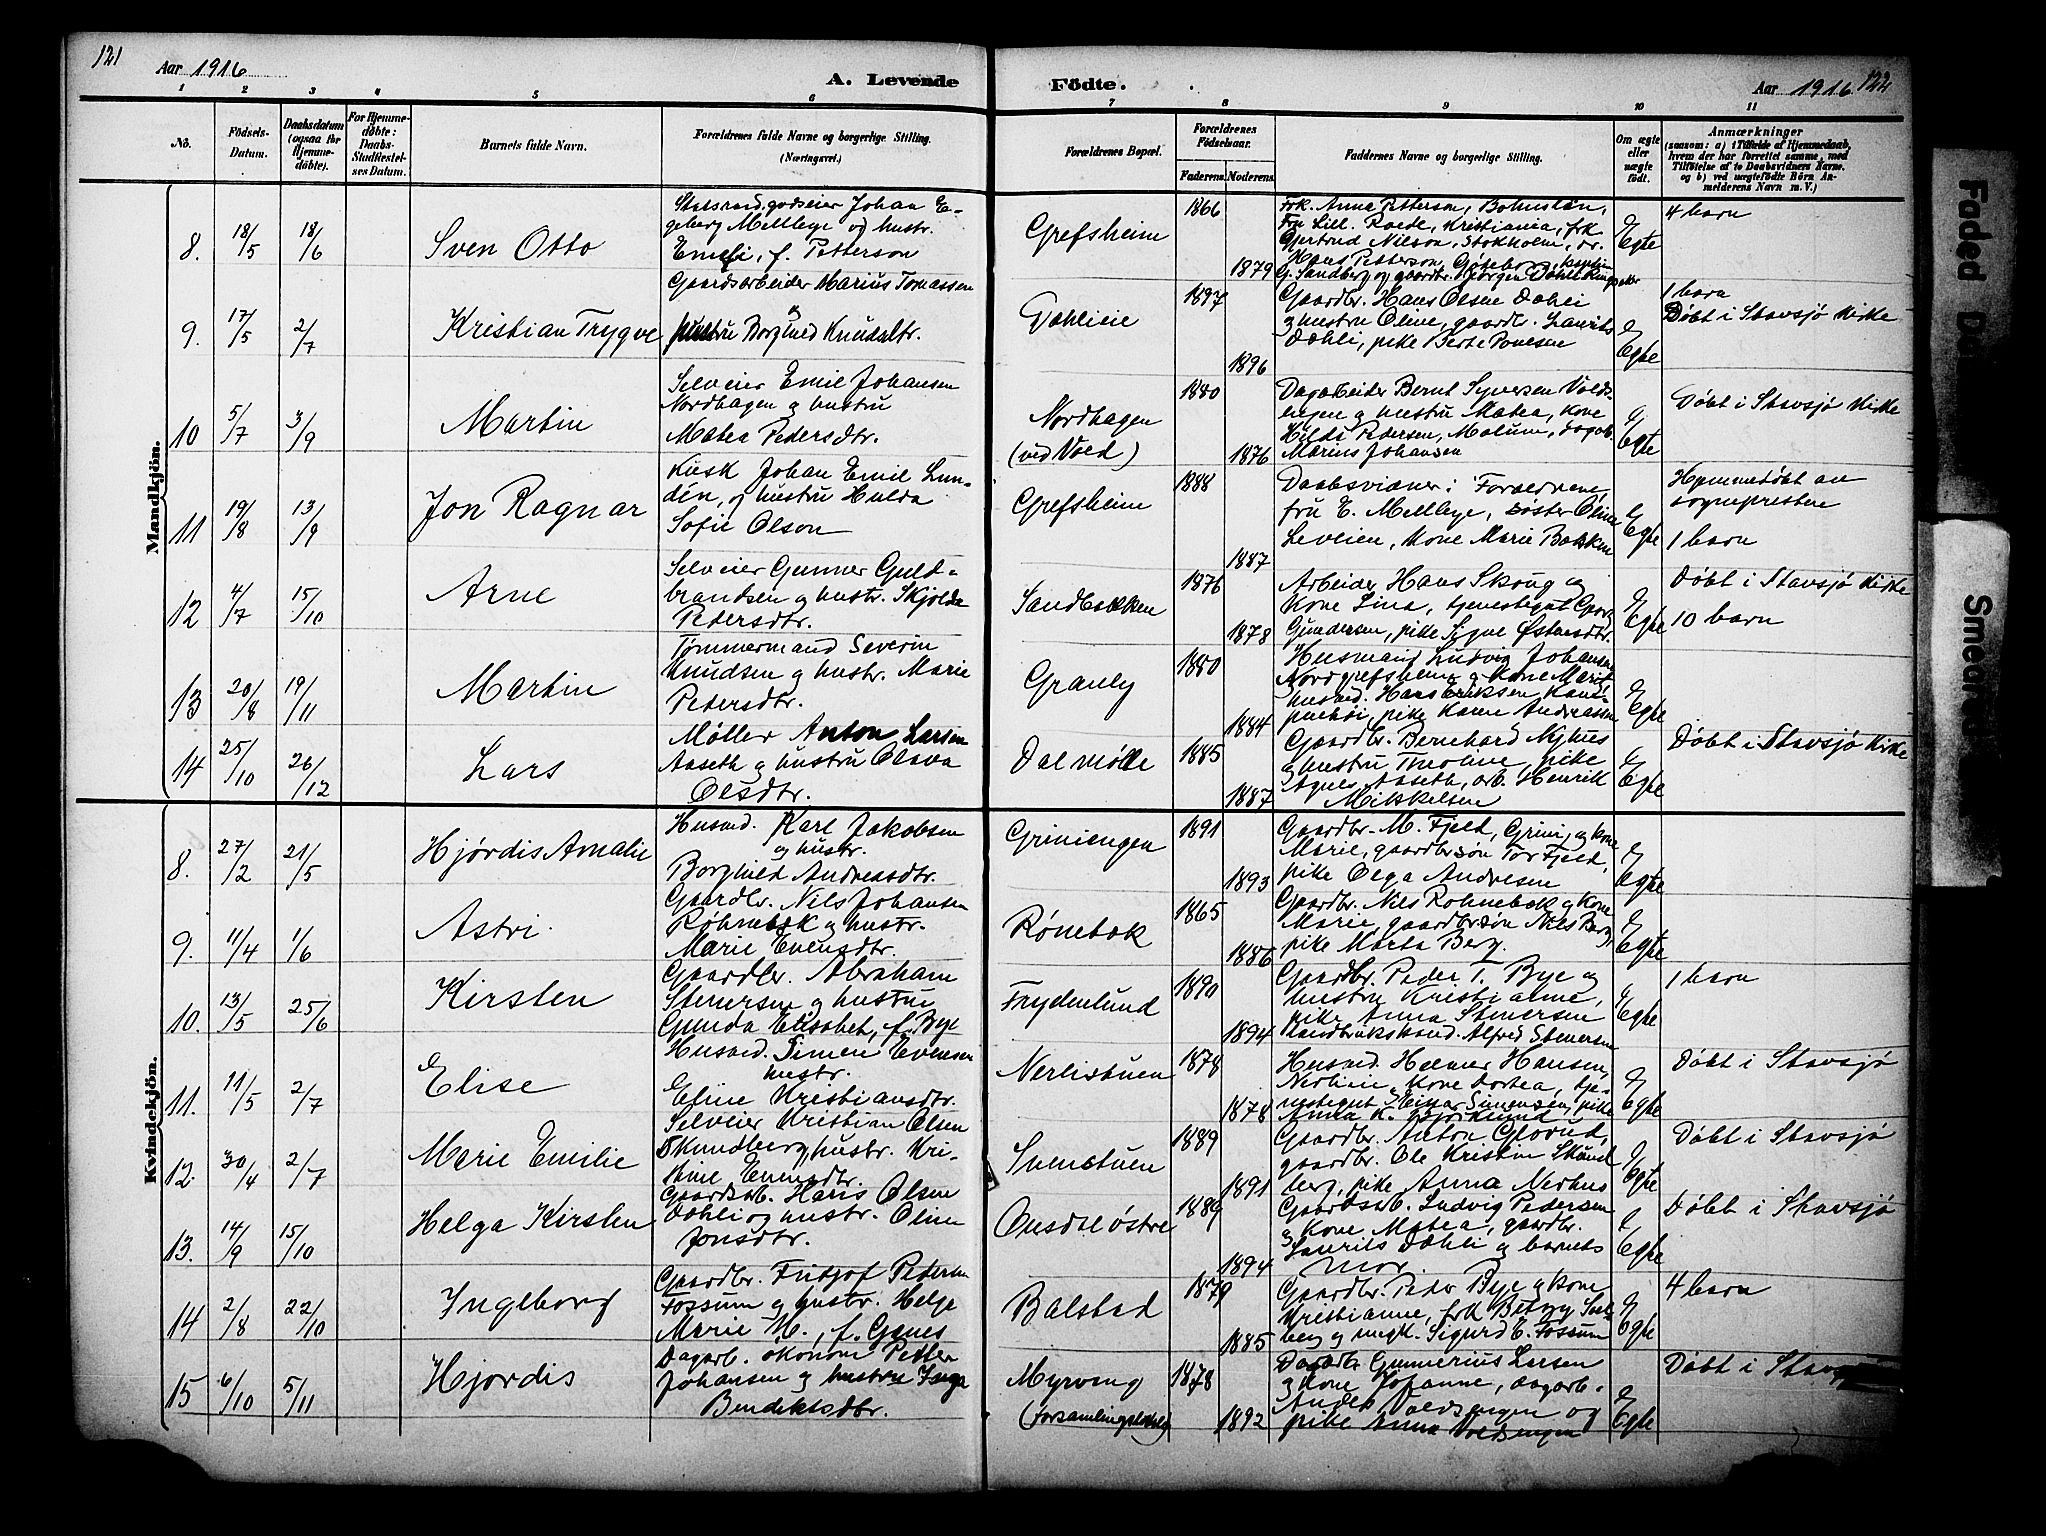 121
Aar 1916
A. Levende
Födte.
Aar 1916
122
1 2 3 4 5 6 7 8 9 10 11
No.
Födsels-
Datum.
Daabsdatum
(ogsaa for
Hjemme-
døbte).
For Hjemme-
døbte:
Daabs-
Stadfæstel-
ses Datum.
Barnets fulde Navn.
Forældrenes fulde Navne og borgerlige Stilling.
(Næringsvei.)
Forældrenes Bopæl.
Forældrenes
Födselsaar.
Faderens. Moderens.
Faddernes Navne og borgerlige Stilling.
Om ægte
eller
uægte
født.
Anmærkninger
(saasom: a) i Tilfælde af Hjemmedaab,
hvem der har forrettet samme, med
Tilföielse af to Daabsvidners Navne,
og b) ved uægtefödte Börn An-
melderens Navn m. V.)
Mandkjön.
8. 18/5 18/6
Sven Otto
Statsraad, godseier Johan E-
geberg Mellbye og hustr.
Emeli, f. Petterson
Grefsheim
1866
1879
Frk. Anna Petterson, Bohuslän,
Fru Lill. Roede, Kristiania, frk.
Gertrud Nilson, Stokholm, dr.
Hans Petterson, Gøteborg, kaptein
G. Sandberg og gaardbr. Jørgen Dæhli, Ringsaker
Egte
4 barn
9. 17/5 2/7
Kristian Trygve
Gaardsarbeider Marius Tomassen
hustru Borghild Knudsdtr.
Dahlieie
1897
1896
Gaardbr. Hans Olsen Dæhli
og hustru Olive, gaardbr. Laurits
Dæhli, pike Berte Povelsen
Egte
1 barn
Døbt i Stavsjø kirke
10 5/7 3/9
Martin
Selveier Emil Johansen
Nordhagen og hustru
Matea Pedersdtr.
Nordhagen
(ved Vold)
1880
1876
Dagarbeider Bernt Syversen Volds-
engen og hustru Matea, kone
Hilda Pedersen, Malum, dagarb.
Marius Johansen
Egte
Døbt i Stavsjø kirke
11 19/8 13/9
Jon Ragnar
Kusk Johan Emil Lun-
dén, og hustru Hulda
Sofie Olson
Grefsheim
1888
1887
Daabsvidner: Forældrene,
fru E. Mellbye, søster Oline
Leveien, kone Marie Bakken
Egte
Hjemmedøbt av
sognepresten
1 barn
12 4/7 15/10
Arne
Selveier Gunner Guld-
brandsen og hustr. Skjolda
Pedersdtr.
Sandbakken
1876
1878
Arbeider Hans Skoug og
kone Lina, tjenestegut Georg
Gundersen, pike Signe Østensdtr.
Egte
Døbt i Stavsjø kirke
10 barn
13 20/8 19/11
Martin
Tømmermand Severin
Knudsen og hustr. Marie
Pedersdtr.
Granly
1880
1884
Husmand Ludvig Johansen
Nordgrefsheim og kone Marit
husmd. Hans Eriksen
pike Karen Andreassen
Egte
14 25/10 26/12
Lars
Møller Anton Larsen
Aaseth og hustru Olava
Olsdtr.
Dalmølle
1885
1887
Gaardbr. Bernhard Nyhus
og hustru Theoline, pike
Agnes Aaseth, arb. Henrik
Mikkelsen
Egte
Døbt i Stavsjø kirke
Kvindekjön.
8. 27/2 21/5
Hjørdis Amalie
Husmd. Karl Jakobsen
og hustr.
Borghild Andreasdtr.
Griniengen
1891
1893
Gaardbr. M. Fjeld, Grini, og kone
Marie, gaardbrsøn Tor Fjeld,
pike Olga Andresen
Egte
9. 11/4 1/6
Astri.
Gaardbr. Nils Johansen
Rohnebæk og hustr.
Marie Evensdtr.
Rønebæk
1865
1886
Gaardbr. Nils Rohnebæk og kone
Marie, gaardbrsøn Nils Berg,
pike Marta Berg.
Egte
10. 13/5 25/6
Kirsten
Gaardbr. Abraham
Stenersen og hustru
Gunda Elisabet, f. Bye
Frydenlund
1890
1894
Gaardbr. Peder T. Bye og
hustru Kristianne,
pike Anna Stenersen
Landbrukskand. Alfred Stenersen
Egte
1 barn
11. 11/5 2/7
Elise
Husmd. Simen Evensen
hustr.
Eline Kristiansdtr.
Nerlistuen
1878
1878
Husmd. Helmer Hansen,
Nerlieie, kone Dortea, tje-
nestegut Einar Simensen, pike
Anna K. Bjørklund
Egte
Døbt i Stavsjø
12. 30/4 2/7
Marie Emilie
Selveier Kristian Olsen
Skundberg, hustr. Kri-
stine Evensdtr.
Svenstuen
1889
1891
Gaardbr. Anton Glorud,
gaardbr. Ole Kristian Skund
berg, pike Anna Nerhus
Egte
Døbt i Stavsjø
13. 14/9 15/10
Helga Kirsten
Gaardsarb. Hans Olsen
Dæhli og hustr. Oline
Jonsdtr.
Ousdal østre
1889
1894
Gaardsarb. Ludvig Pedersen
og kone Matea, gaardbr.
Laurits Dæhli og barnets
mor.
Egte
Døbt i Stavsjø
14 2/8 22/10
Ingeborg
Gaardbr. Fritjof Petersen
Fossum og hustr. Helge
Marie M., f. Gjanes
Balstad
1879
1885
Gaardbr. Peder Bye og kone
Kristianne, frk Betzy Sol-
berg og ungk. Sigurd E. Fossum
Egte
4 barn
15 6/10 5/11
Hjørdis
Dagarb. økonom Petter
Johansen og hustru Inga
Bendiktsdtr.
Myrvang
(Forsamlingslokale)
1878
1892
Dagarb. Gunnerius Larsen
og kone Johanne, dagarb.
Anders Voldsengen og
pike Anna Voldsengen
Egte
Døbt i Stavsjø
Faded
Smeared